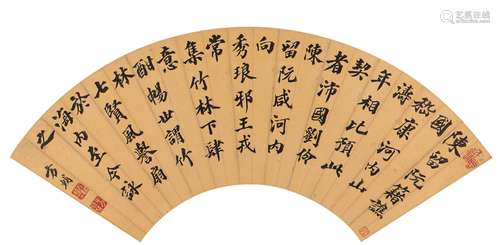 陳留阮籍譙
國
嵇康河內山
濤
年相比預此
契
者沛國劉伶
陳
留阮咸河內
向
秀琅邪王戎
常
集竹林下肆
意
酣暢世謂竹
林
七賢風譽扇
於
海內至今詠
之